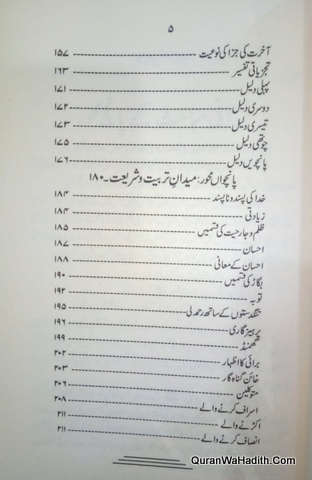 ۵
آخرت کی جزا کی نوعیت ---------- ۱۵۷
تجزیاتی تفسیر ---------- ۱۶۳
پہلی دلیل ---------- ۱۷۱
دوسری دلیل ---------- ۱۷۲
تیسری دلیل ---------- ۱۷۳
چوتھی دلیل ---------- ۱۷۵
پانچویں دلیل ---------- ۱۷۶
پانچواں محور: میدانِ تربیت و شریعت۔ ۱۸۰
خدا کی پسند و ناپسند ---------- ۱۸۴
زیادتی ---------- ۱۸۴
ظلم و جارحیت کی قسمیں ---------- ۱۸۵
احسان ---------- ۱۸۷
احسان کے معانی ---------- ۱۸۸
بگاڑ کی قسمیں ---------- ۱۹۰
توبہ ---------- ۱۹۲
تنگدستوں کے ساتھ رحمدلی ---------- ۱۹۵
پرہیزگاری ---------- ۱۹۶
گھمنڈ ---------- ۱۹۹
برائی کا اظہار ---------- ۲۰۲
خائن گناہ گار ---------- ۲۰۳
متوکلین ---------- ۲۰۶
اسراف کرنے والے ---------- ۲۰۸
اکڑنے والے ---------- ۲۱۱
انصاف کرنے والے ---------- ۲۱۱
QuranWaHadith.Com